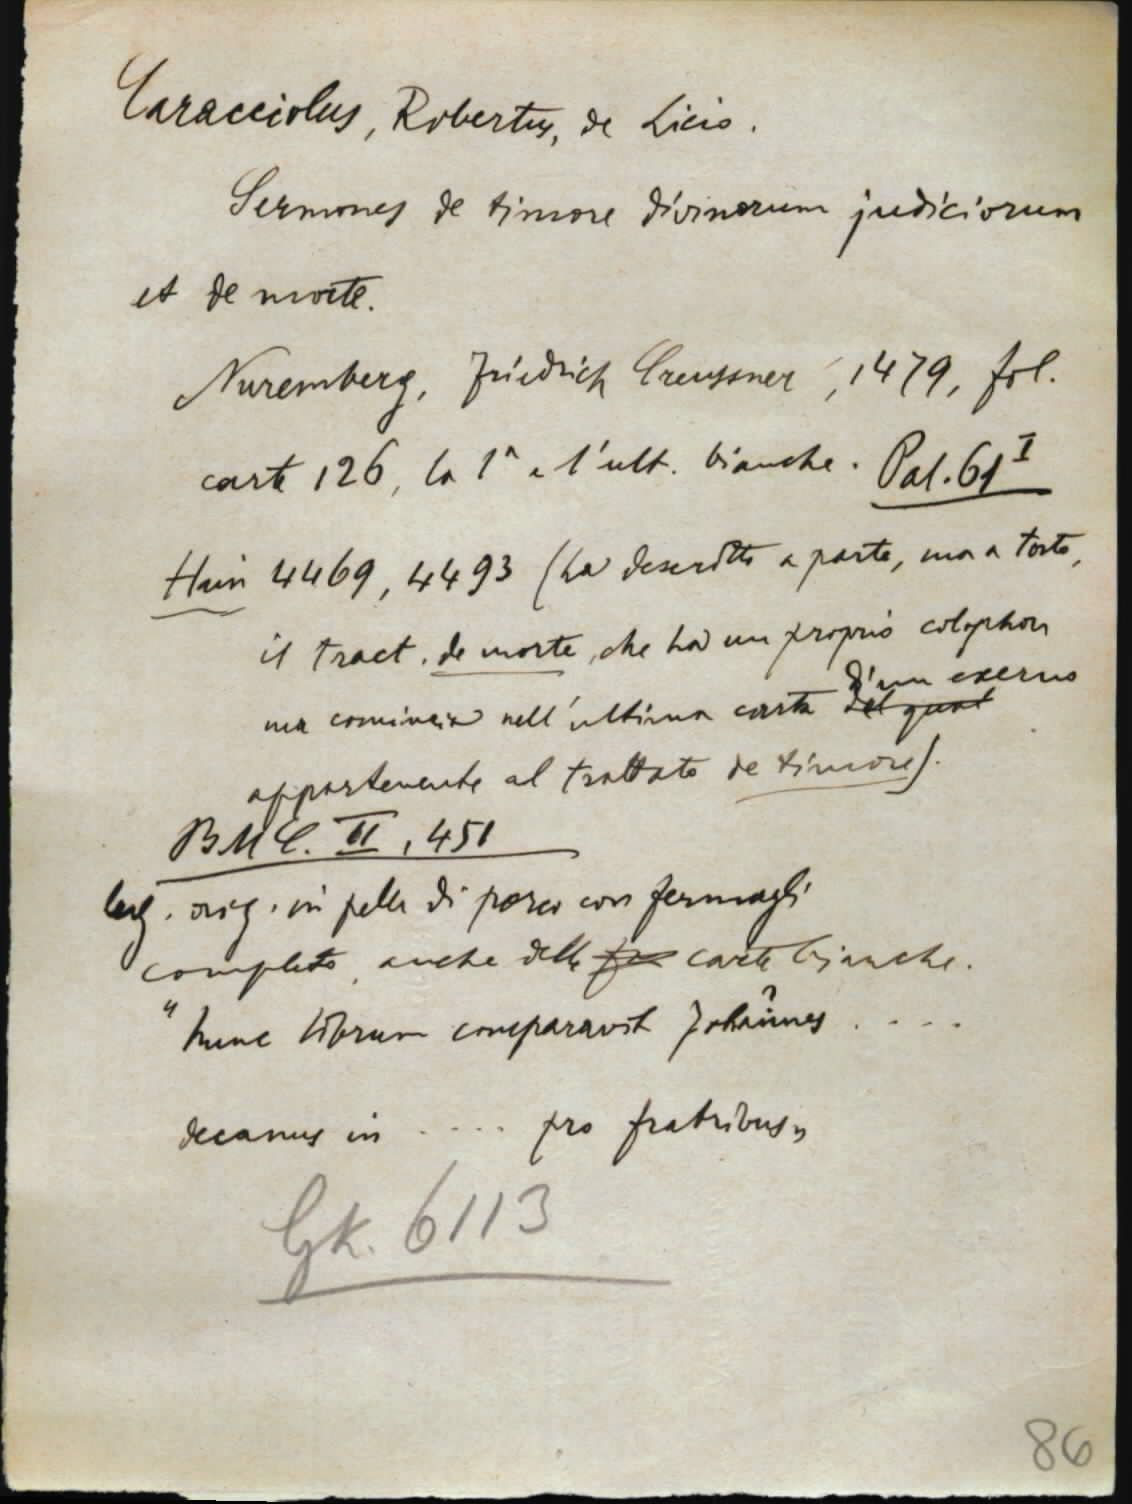 Caracciolus, Robertus, de Licio.
Sermones de timore divinorum judiciorum
et de morte.
Nuremberg, Friedrich Creussner, 1479, fol.
carte 126, la 1ª e l'ult. bianche. Pal. 61 I
Hain 4469, 4493 (ha descritto a parte, ma a torto,
il tract. de morte, che ha un proprio colophon
ma comincia nell'ultima carta del qual d'un
appartenente al trattato de timore).
BMC. II, 451
leg. orig. in pelle di porco con fermagli
completo, anche delle carte bianche.
"hunc librum comparavit Johannes ....
decanus in .... pro fratribus"
Gk. 6113
86